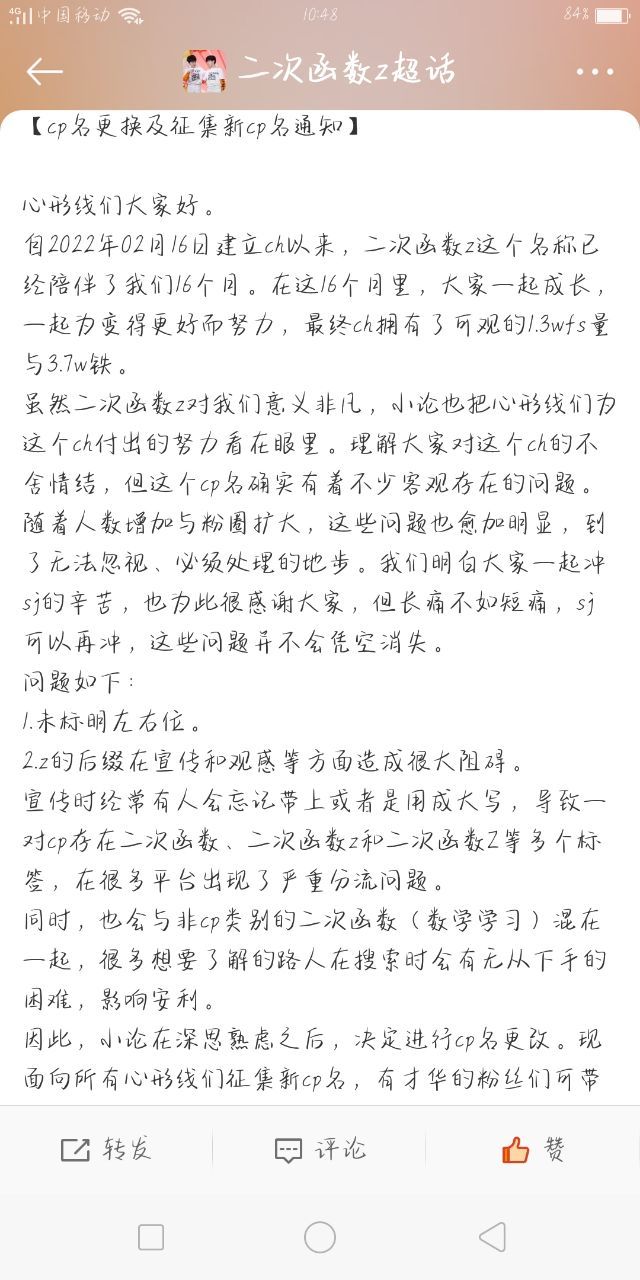 4G 中国移动 10:48 84%
二次函数z超话
【cp名更换及征集新cp名通知】
心形线们大家好。
自2022年02月16日建立ch以来，二次函数z这个名称已
经陪伴了我们16个月。在这16个月里，大家一起成长，
一起为变得更好而努力，最终ch拥有了可观的1.3wfs量
与3.7w铁。
虽然二次函数z对我们意义非凡，小论也把心形线们为
这个ch付出的努力看在眼里。理解大家对这个ch的不
舍情结，但这个cp名确实有着不少客观存在的问题。
随着人数增加与粉圈扩大，这些问题也愈加明显，到
了无法忽视、必须处理的地步。我们明白大家一起冲
sj的辛苦，也为此很感谢大家，但长痛不如短痛，sj
可以再冲，这些问题并不会凭空消失。
问题如下：
1.未标明左右位。
2.z的后缀在宣传和观感等方面造成很大阻碍。
宣传时经常有人会忘记带上或者是用成大写，导致一
对cp存在二次函数、二次函数z和二次函数Z等多个标
签，在很多平台出现了严重分流问题。
同时，也会与非cp类别的二次函数（数学学习）混在
一起，很多想要了解的路人在搜索时会有无从下手的
困难，影响安利。
因此，小论在深思熟虑之后，决定进行cp名更改。现
面向所有心形线们征集新cp名，有才华的粉丝们可带
转发 评论 赞